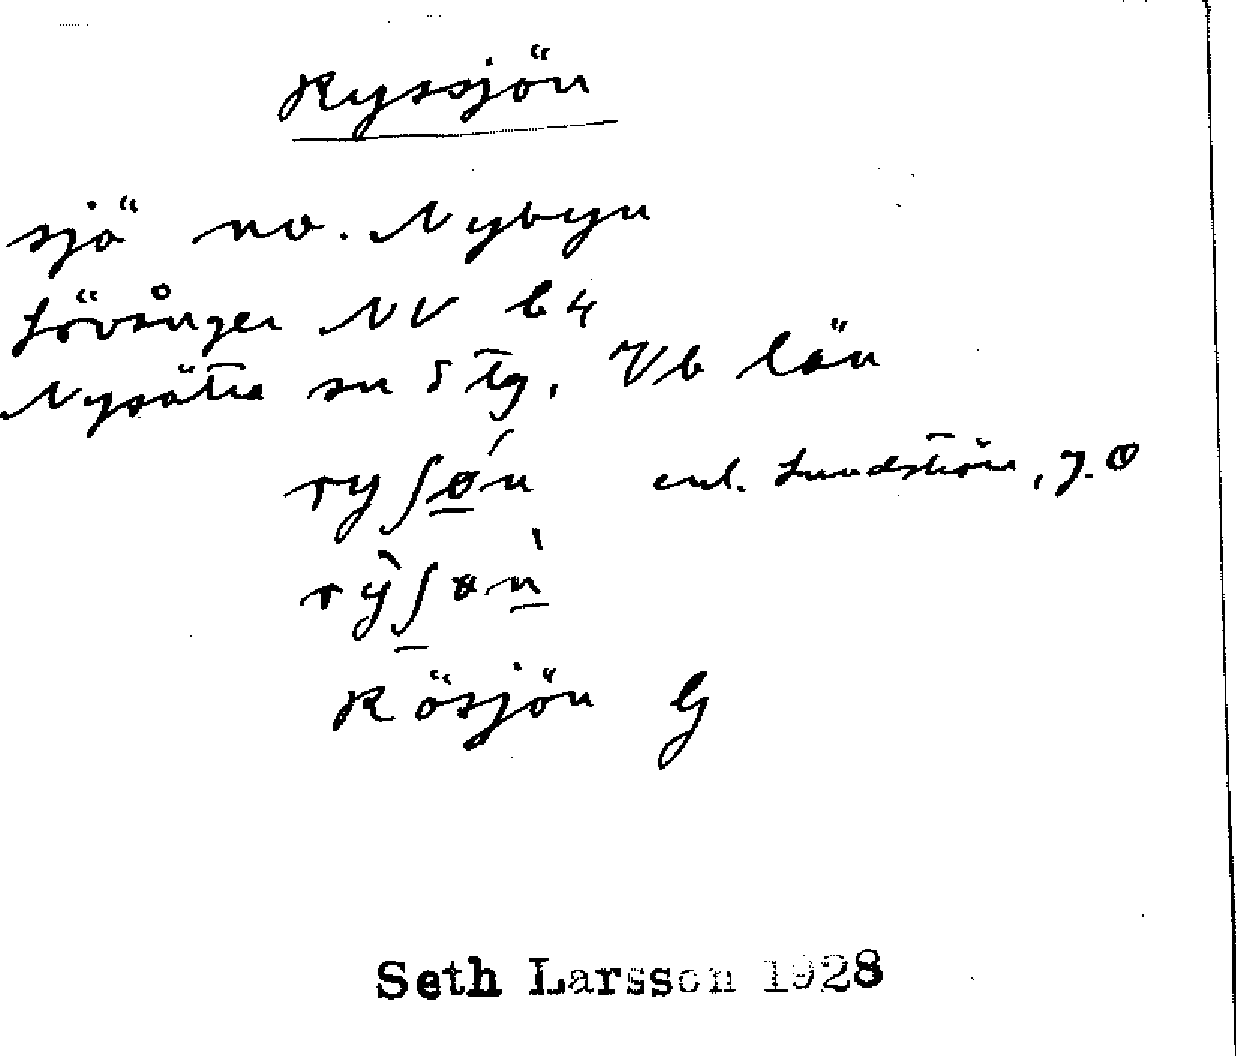 Ryssjön
sjö no. Nybyn
Lövånger NV b4
Nysätra sn S Tg, Vb län
ryʃǿn enl. Lundström, J. Ö
rỳʃøǹ
Rösjön G
Seth Larsson 1928